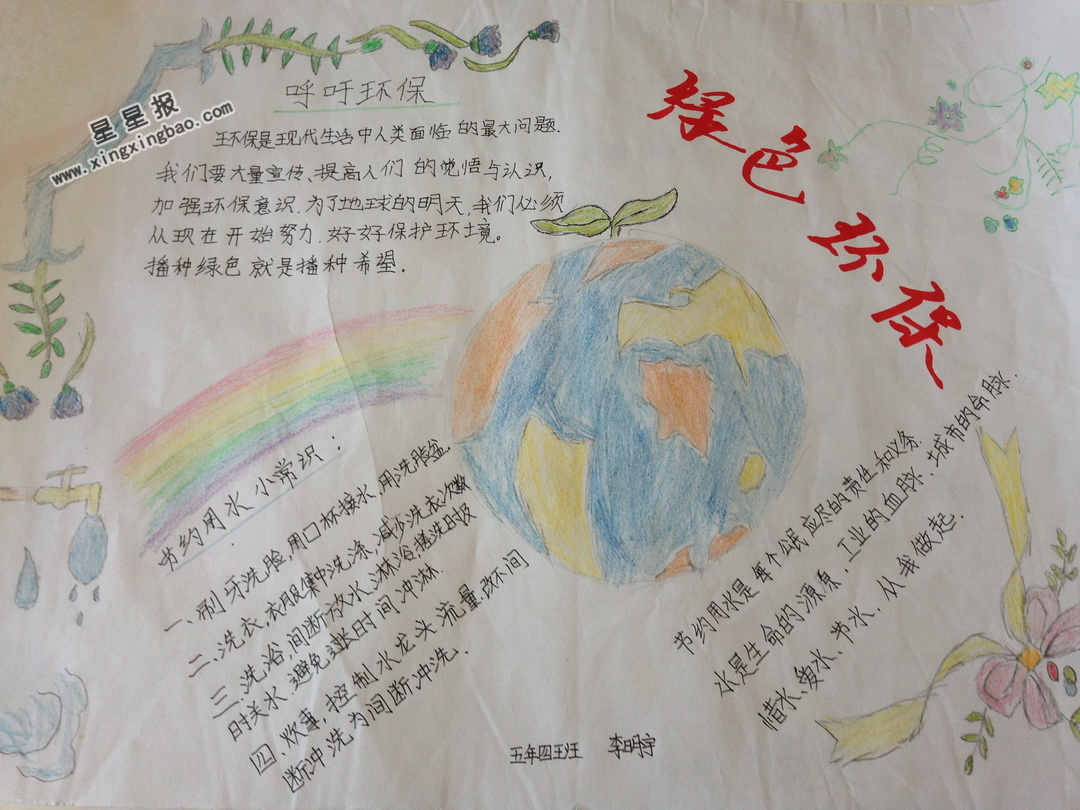 星星报
www.xingxingbao.com
呼吁环保
环保是现代生活中人类面临的最大问题.
我们要大量宣传、提高人们的觉悟与认识,
加强环保意识.为了地球的明天,我们必须
从现在开始努力.好好保护环境。
播种绿色就是播种希望.
绿色环保
节约用水小常识:
一、刷牙洗脸,用口杯接水,用洗脸盆.
二、洗衣,衣服集中洗涤,减少洗衣次数
三、洗浴,间断放水淋浴,搓洗时及
时关水.避免过长时间冲淋.
四、炊事,控制水龙头流量,改不间
断冲洗为间断冲洗.
节约用水是每个公民应尽的责任和义务
水是生命的源泉、工业的血脉、城市的命脉.
惜水、爱水、节水、从我做起.
五年四班 李明宇